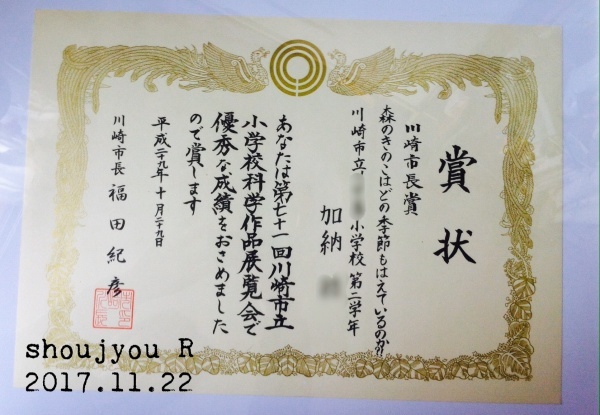 賞状
川崎市長賞
森のきのこはどの季節もはえているのか?!
川崎市立 小学校 第二学年
加納
あなたは第七十一回川崎市立
小学校科学作品展覧会で
優秀な成績をおさめました
ので賞します
平成二十九年十月二十九日
川崎市長 福田紀彦
shoujyou R
2017.11.22